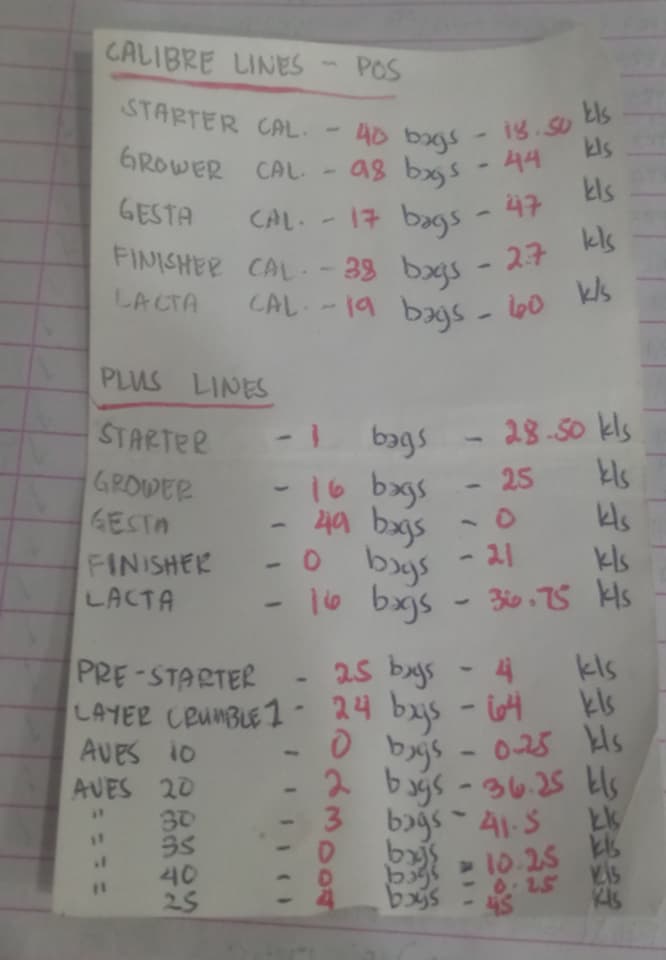 CALIBRE LINES - POS
STARTER CAL. - 40 bags - 18.50 kls
GROWER CAL. - 98 bags - 44 kls
GESTA CAL. - 17 bags - 47 kls
FINISHER CAL. - 38 bags - 27 kls
LACTA CAL. - 19 bags - 60 kls
PLUS LINES
STARTER - 1 bags - 28.50 kls
GROWER - 16 bags - 25 kls
GESTA - 49 bags - 0 kls
FINISHER - 0 bags - 21 kls
LACTA - 16 bags - 36.75 kls
PRE-STARTER - 25 bags - 4 kls
LAYER CRUMBLE 1 - 24 bags - 64 kls
AVES 10 - 0 bags - 0.25 kls
AVES 20 - 2 bags - 36.25 kls
" 30 - 3 bags - 41.5 kls
" 35 - 0 bags - 10.25 kls
" 40 - 0 bags - 0.25 kls
" 25 - 4 bags - 45 kls